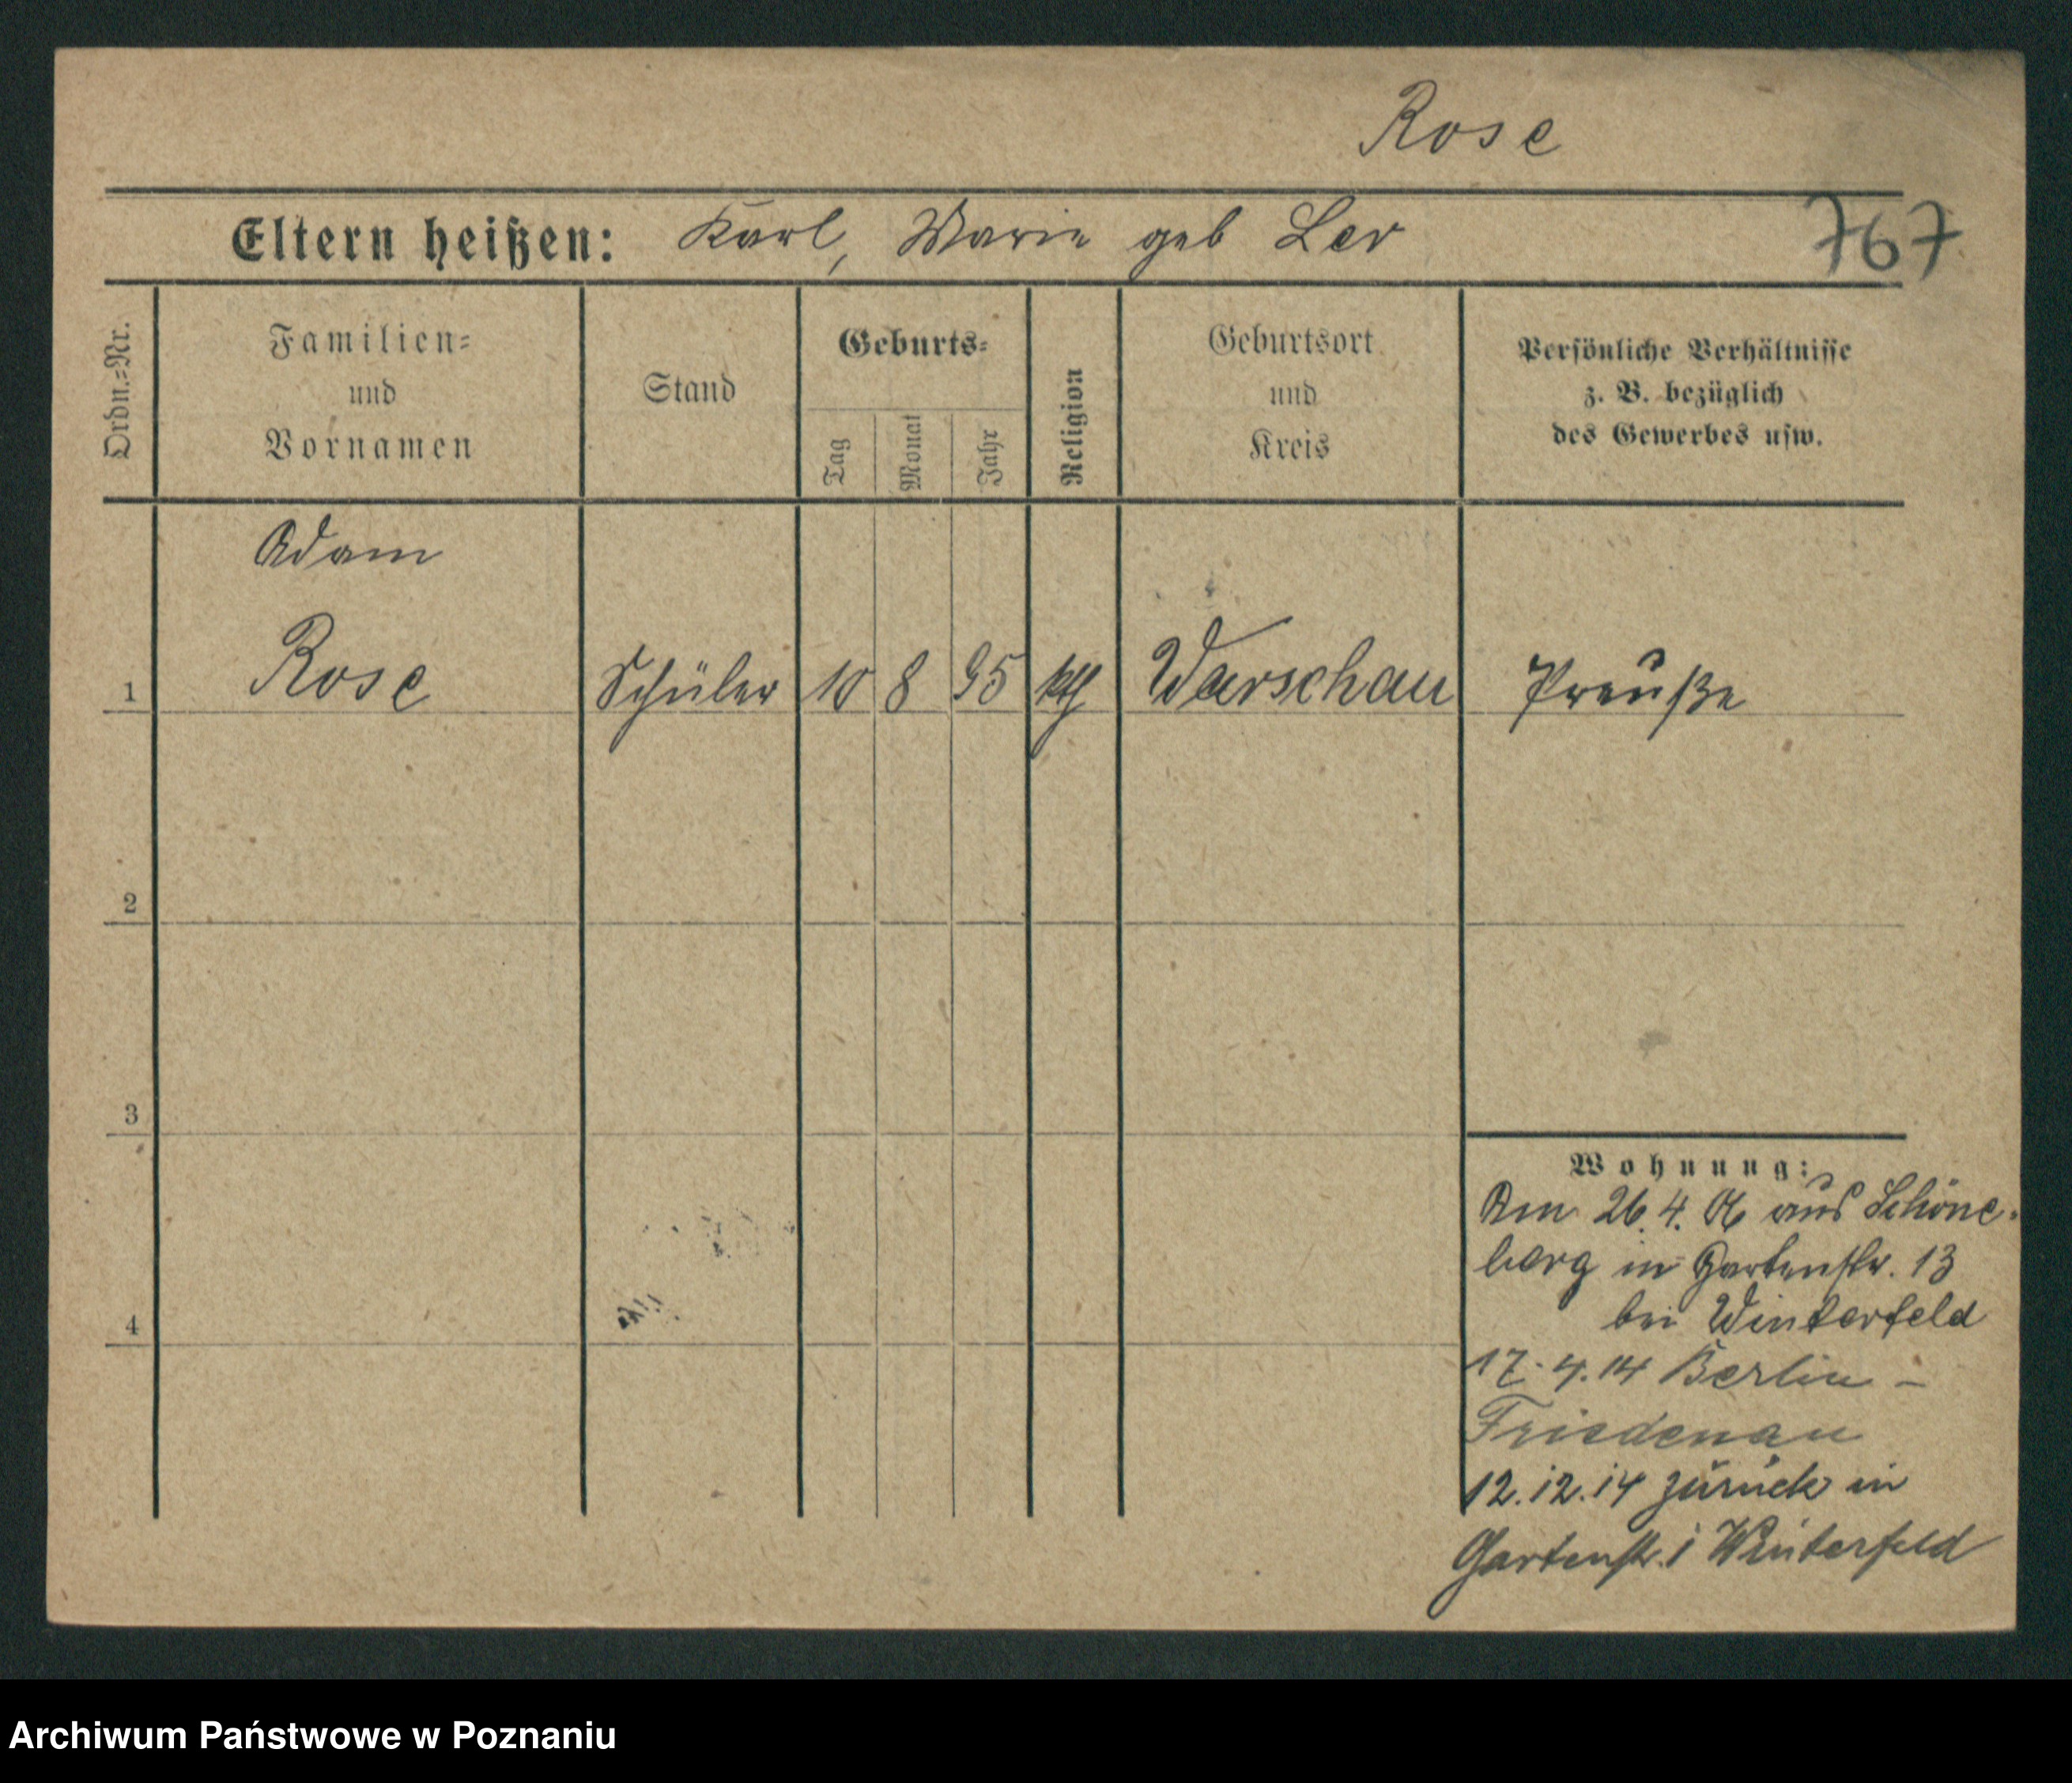 Rose
Eltern heißen: Karl, Marie geb Ler
767
Ordn.=Nr.
Familien=
und
Vornamen
Stand
Geburts=
Tag
Monat
Jahr
Religion
Geburtsort
und
Kreis
Persönliche Verhältnisse
z. B. bezüglich
des Gewerbes usw.
Adam
1 Rose Schüler 10 8 95 kth Warschau Preuße
2
3
4
Wohnung:
Am 26.4. 06 aus Schöne-
berg in Gartenstr. 13
bei Winterfeld
17.4.14 Berlin -
Friedenau
12.12.14 zurück in
Gartenstr. Winterfeld
Archiwum Państwowe w Poznaniu